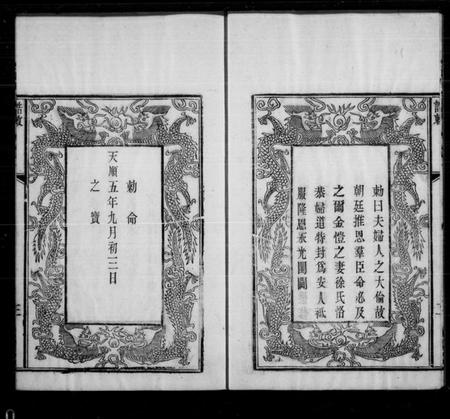 誥敕
敕曰夫婦人之大倫故
朝廷推恩羣臣命必及
之爾金愷之妻徐氏淑
恭婦道特封爲安人祗
服隆恩永光閨閫
敕命
天順五年九月初三日
之寶
誥敕